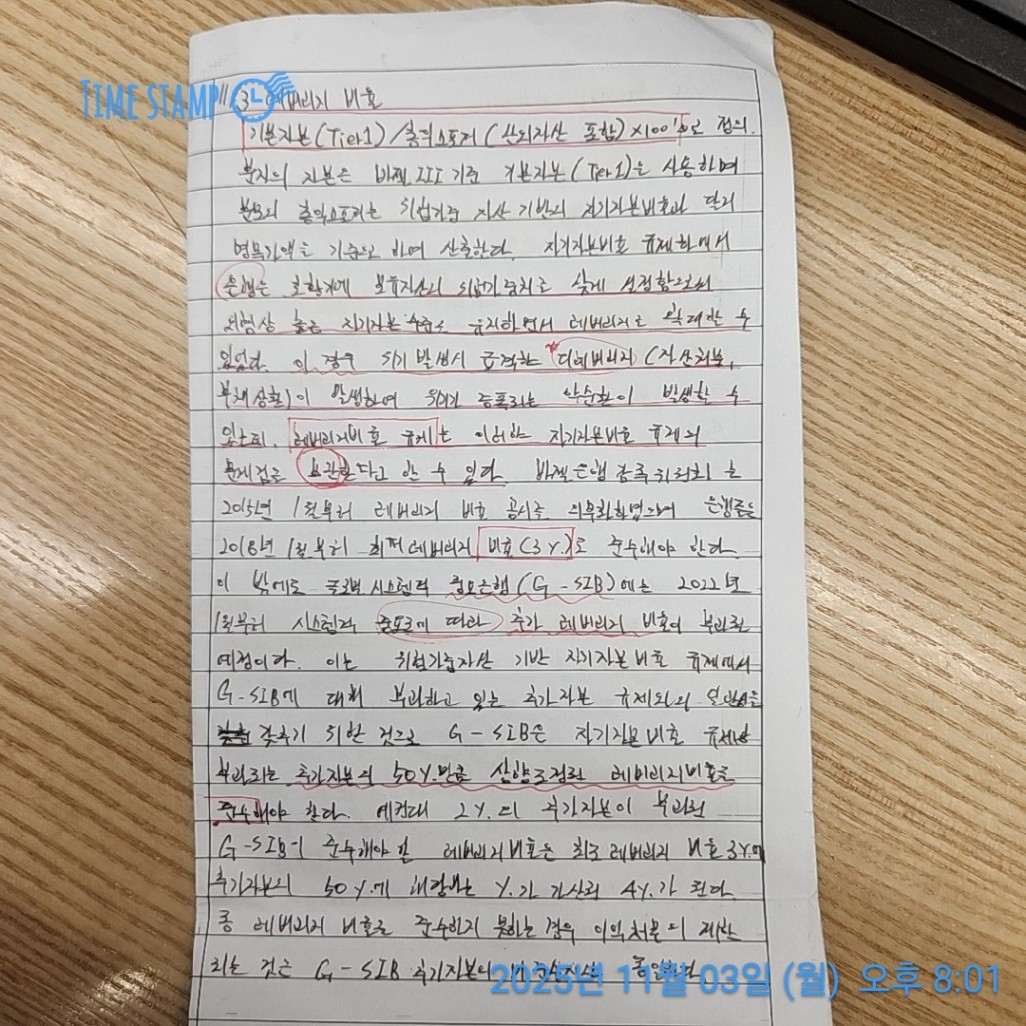 TIME STAMP
11 3. 레버리지 비율
기본자본(Tier1)/총익스포저(난외자산 포함)×100'으로 정의.
분자의 자본은 바젤III 기준 기본자본(Tier1)을 사용하며
분모의 총익스포저는 위험가중 자산 기반의 자기자본비율과 달리
명목가액을 기준으로 하여 산출한다. 자기자본비율 규제하에서
은행은 호황기에 보유자산의 위험가중치를 낮게 설정함으로써
외형상 높은 자기자본 수준을 유지하면서 레버리지를 확대할 수
있었다. 이 경우 위기 발생시 급격한 디레버리지 (자산처분,
부채상환)이 발생하여 위기가 증폭되는 악순환이 발생할 수
있는데, 레버리지비율 규제는 이러한 자기자본비율 규제의
문제점을 보완한다고 할 수 있다. 바젤은행감독위원회는
2015년 1월부터 레버리지 비율 공시를 의무화하였으며 은행들은
2018년 1월부터 최저레버리지 비율(3%)을 준수해야 한다.
이 밖에도 글로벌 시스템적 중요은행(G-SIB)에는 2022년
1월부터 시스템적 중요도에 따라 추가 레버리지 비율이 부과될
예정이다. 이는 위험가중자산 기반 자기자본비율 규제에서
G-SIB에 대해 부과하고 있는 추가자본 규제와의 일관성을
갖추기 위한 것으로 G-SIB은 자기자본비율 규제상
부과되는 추가자본의 50%만큼 상향조정된 레버리지비율을
준수해야 한다. 예컨대 2%의 추가자본이 부과된
G-SIB이 준수해야 할 레버리지비율은 최저 레버리지 비율 3%에
추가자본의 50%에 해당하는 %가 가산된 4%가 된다.
동 레버리지 비율을 준수하지 못하는 경우 이익처분이 제한
되는 것은 G-SIB 추가자본 동일하다
2025년 11월 03일 (월) 오후 8:01